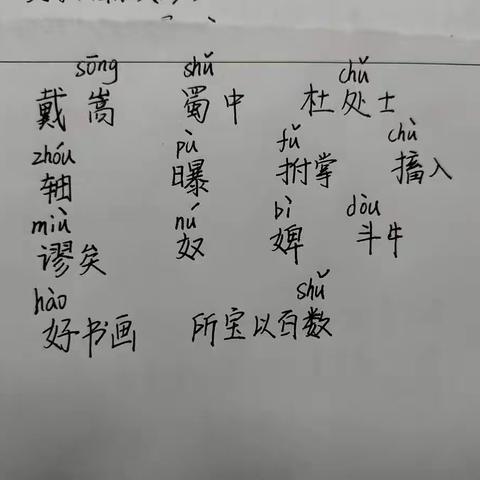 sōng shǔ chǔ
戴嵩 蜀中 杜处士
zhóu pù fǔ chù
轴 曝 拊掌 搐入
miù nú bì dòu
谬矣 奴 婢 斗牛
hào shǔ
好书画 所宝以百数